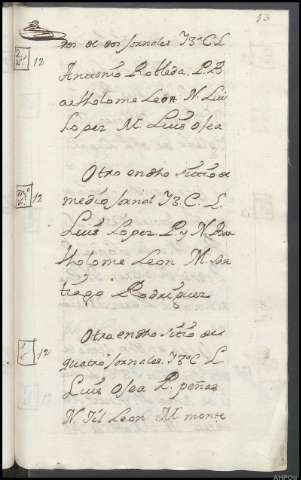 13
ros de dos Jornales I3ª C. L.
Antonio Robleda. P. B
artholome Leon N. Luis
Lopez M. Luis Osea
12
Otro en dho sitio de
medio Jornal I3. C. L
Luis Lopez P. y N. Bar
tholome Leon M. San
tiago Rodriguez
12
Otra en dho sitio de
quatro Jornales. I3ª C L
Luis Osea P. peñas
N. Gil Leon M monte
12
AHPOu